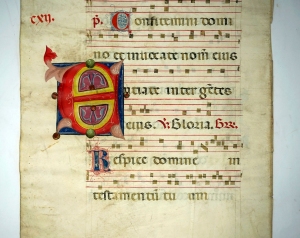 cxij. p. Confitemini domi
no et invocate nom eius
Entiate inter gentes
eius. V. Gloria.
Respice domine in
testamentū tuum